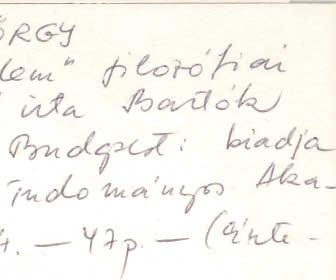 ÖRGY
lem" filozófiai
írta Bartók
Budapest: kiadja
Tudományos Aka-
. — 47p. — (Érte-